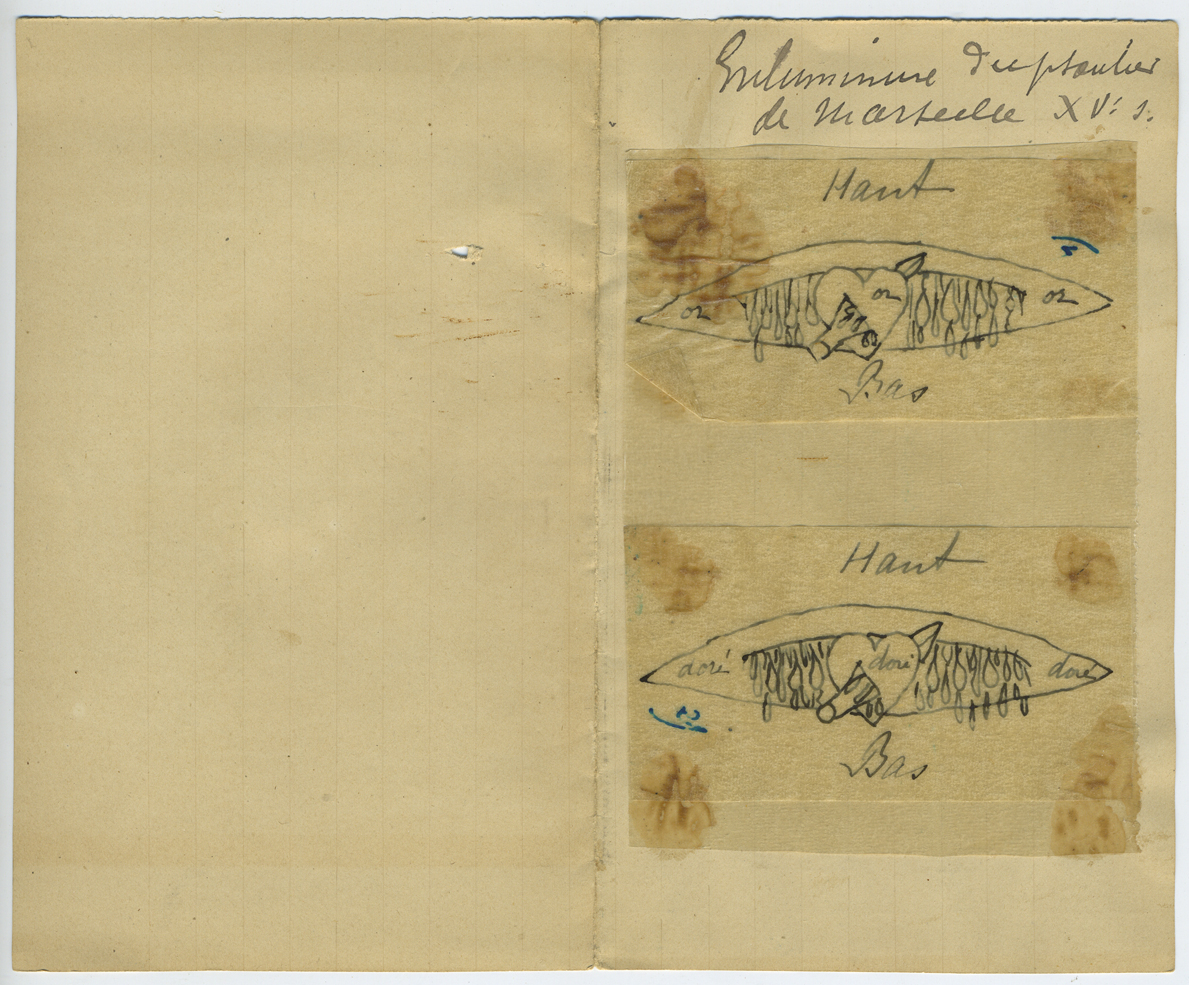 Enluminure du psautier
de Marseille XVe s.
Haut
or
or
or
Bas
Haut
doré
doré
doré
Bas